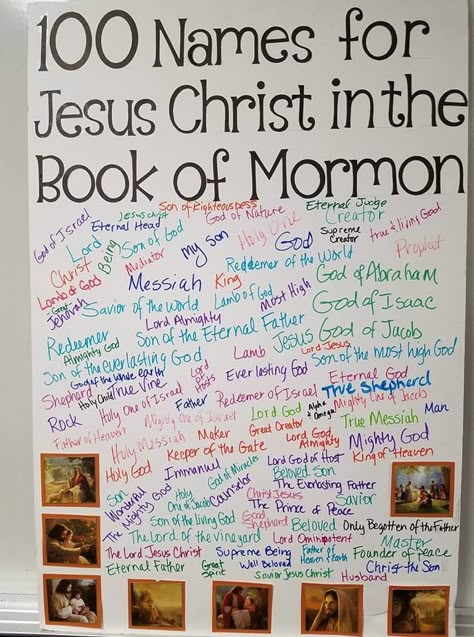 100 Names for
Jesus Christ in the
Book of Mormon
Son of Righteousness
Eternal Judge
God of Israel
Jesus Christ
God of Nature
Creator
Eternal Head
Lord
Being
Son of God
my son
Holy One
God
Supreme Creator
true & living God
Christ
Mediator
Redeemer of the World
Prophet
Lamb of God
Messiah
King
God of Abraham
Great
Jehovah
Savior of the world
Lamb of God
Most High
God of Isaac
Lord Almighty
Redeemer
Son of the Eternal Father
Jesus
God of Jacob
Almighty God
Lord Jesus
Son of the everlasting God
Lamb
Son of the most high God
God of the whole earth
Lord of Hosts
Ever lasting God
Eternal God
Shepherd
Holy Child
True Vine
True Shepherd
Rock
Holy One of Israel
Father
Redeemer of Israel
Mighty One of Jacob
Mighty One of Israel
Lord God
Alpha & Omega
True Messiah
Man
Father of Heaven
Holy Messiah
Maker
Great Creator
Lord God Almighty
Mighty God
Keeper of the Gate
King of Heaven
Holy God
Immanuel
Lord God of Host
Son
God of Miracles
Beloved Son
Wonderful
Holy One of Jacob
Counselor
The Everlasting Father
The Mighty God
Christ Jesus
Savior
The Prince of Peace
Son of the living God
Good Shepherd
Beloved
Only Begotten of the Father
The Lord of the vineyard
Lord Omnipotent
Master
The Lord Jesus Christ
Supreme Being
Father of Heaven & Earth
Founder of peace
Eternal Father
Great Spirit
Well Beloved
Christ the Son
Savior Jesus Christ
Husband